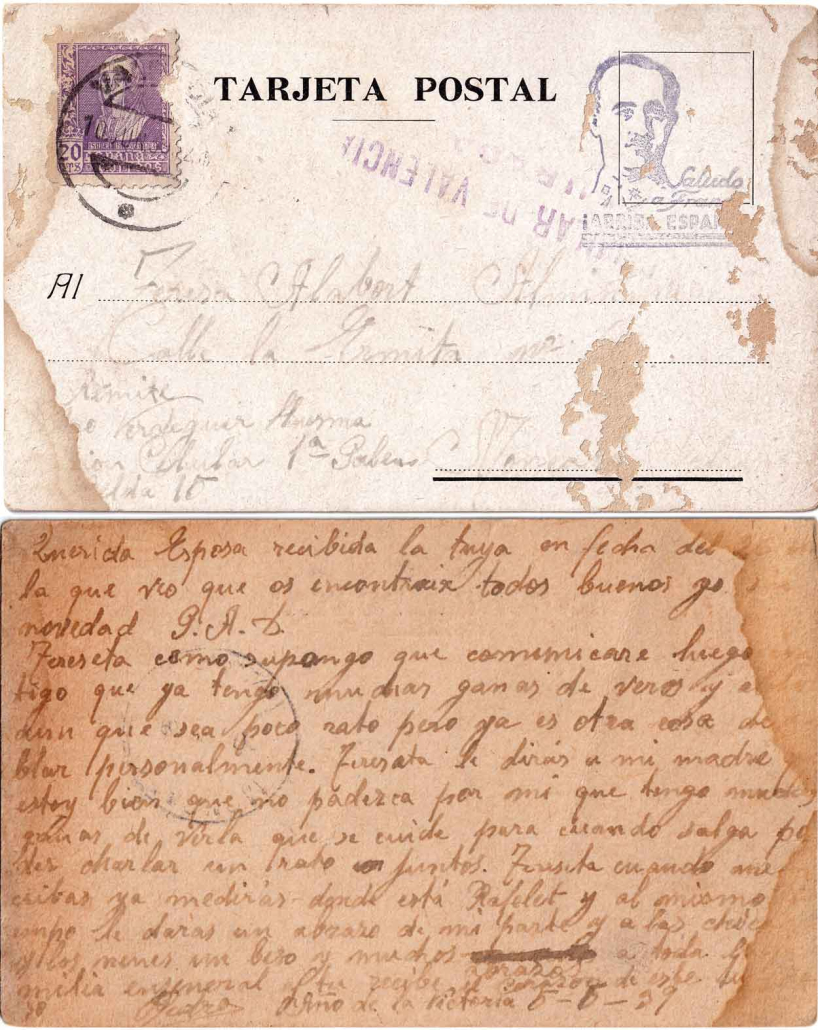 TARJETA POSTAL
20
DE VALENCIA
Saludo
a Fran
¡ARRIBA ESPAÑ
Al Teresa Alabort
Calle la Ermita nº
Remite
Verdeguer
Celular 1ª Galeria
elda 15
Querida Esposa recibida la tuya en fecha del
la que veo que os encontraix todos buenos yo
novedad G. A. D.
Tereseta como supongo que comunicare luego
tigo que ya tengo muchas ganas de veros y
aun que sea poco rato pero ya es otra cosa
blar personalmente. Tereseta le dirás a mi madre
estoy bien que no padezca por mi que tengo muchas
ganas de verla que se cuide para cuando salga po
der charlar un rato juntos. Tereseta cuando me
cribas ya medirás donde está Rafelet y al mismo
empo le daras un abrazo de mi parte y a las
y los nenes un beso y muchos abrazos a toda la
milia engeneral y tu recibe el corazon de este tu
Pedro Año de la Victoria 5-6-39